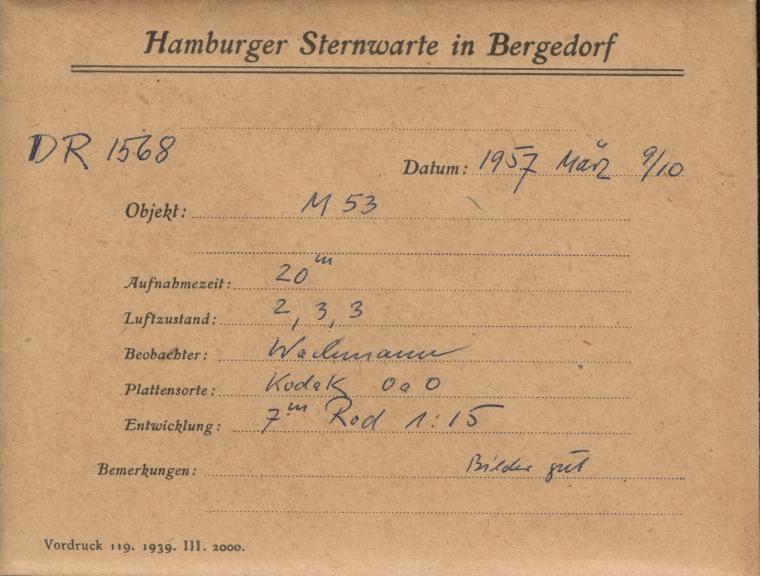 Hamburger Sternwarte in Bergedorf
DR 1568
Datum: 1957 März 9/10
Objekt: M 53
Aufnahmezeit: 20m
Luftzustand: 2, 3, 3
Beobachter: Wachmann
Plattensorte: Kodak OaO
Entwicklung: 7m Rod 1:15
Bemerkungen: Bilder gut
Vordruck 119. 1939. III. 2000.